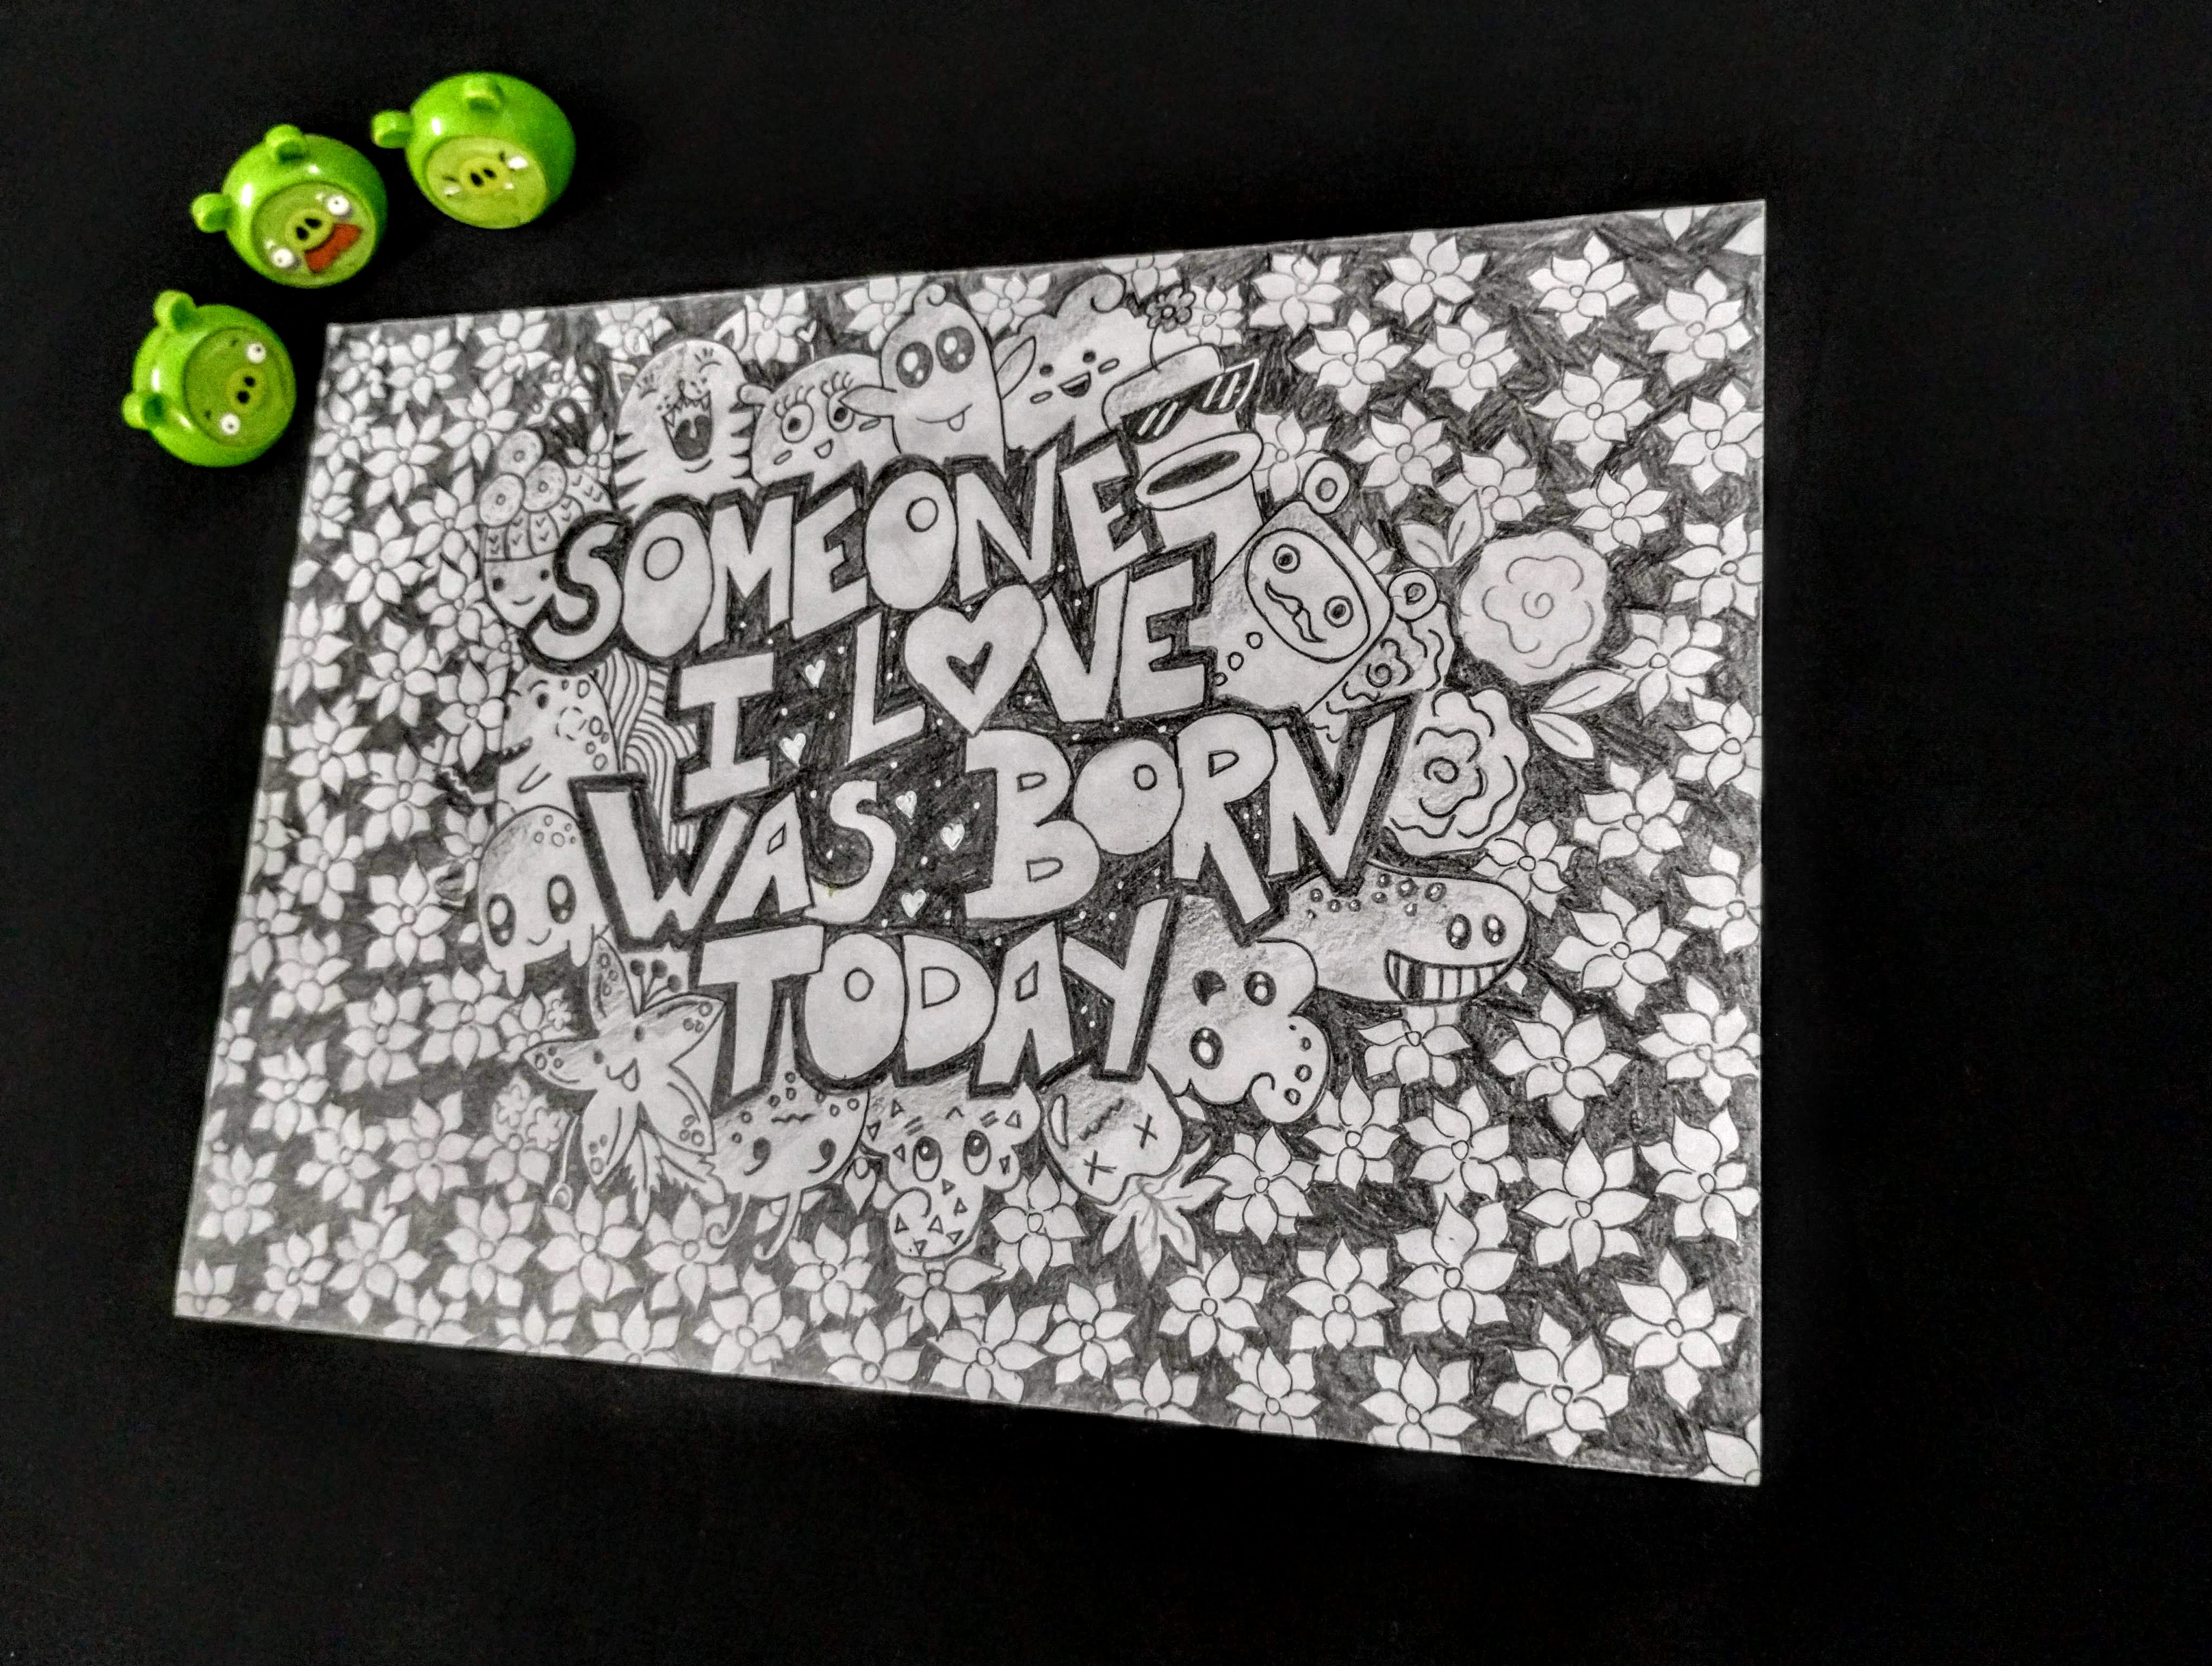 SOMEONE
I LOVE
WAS BORN
TODAY